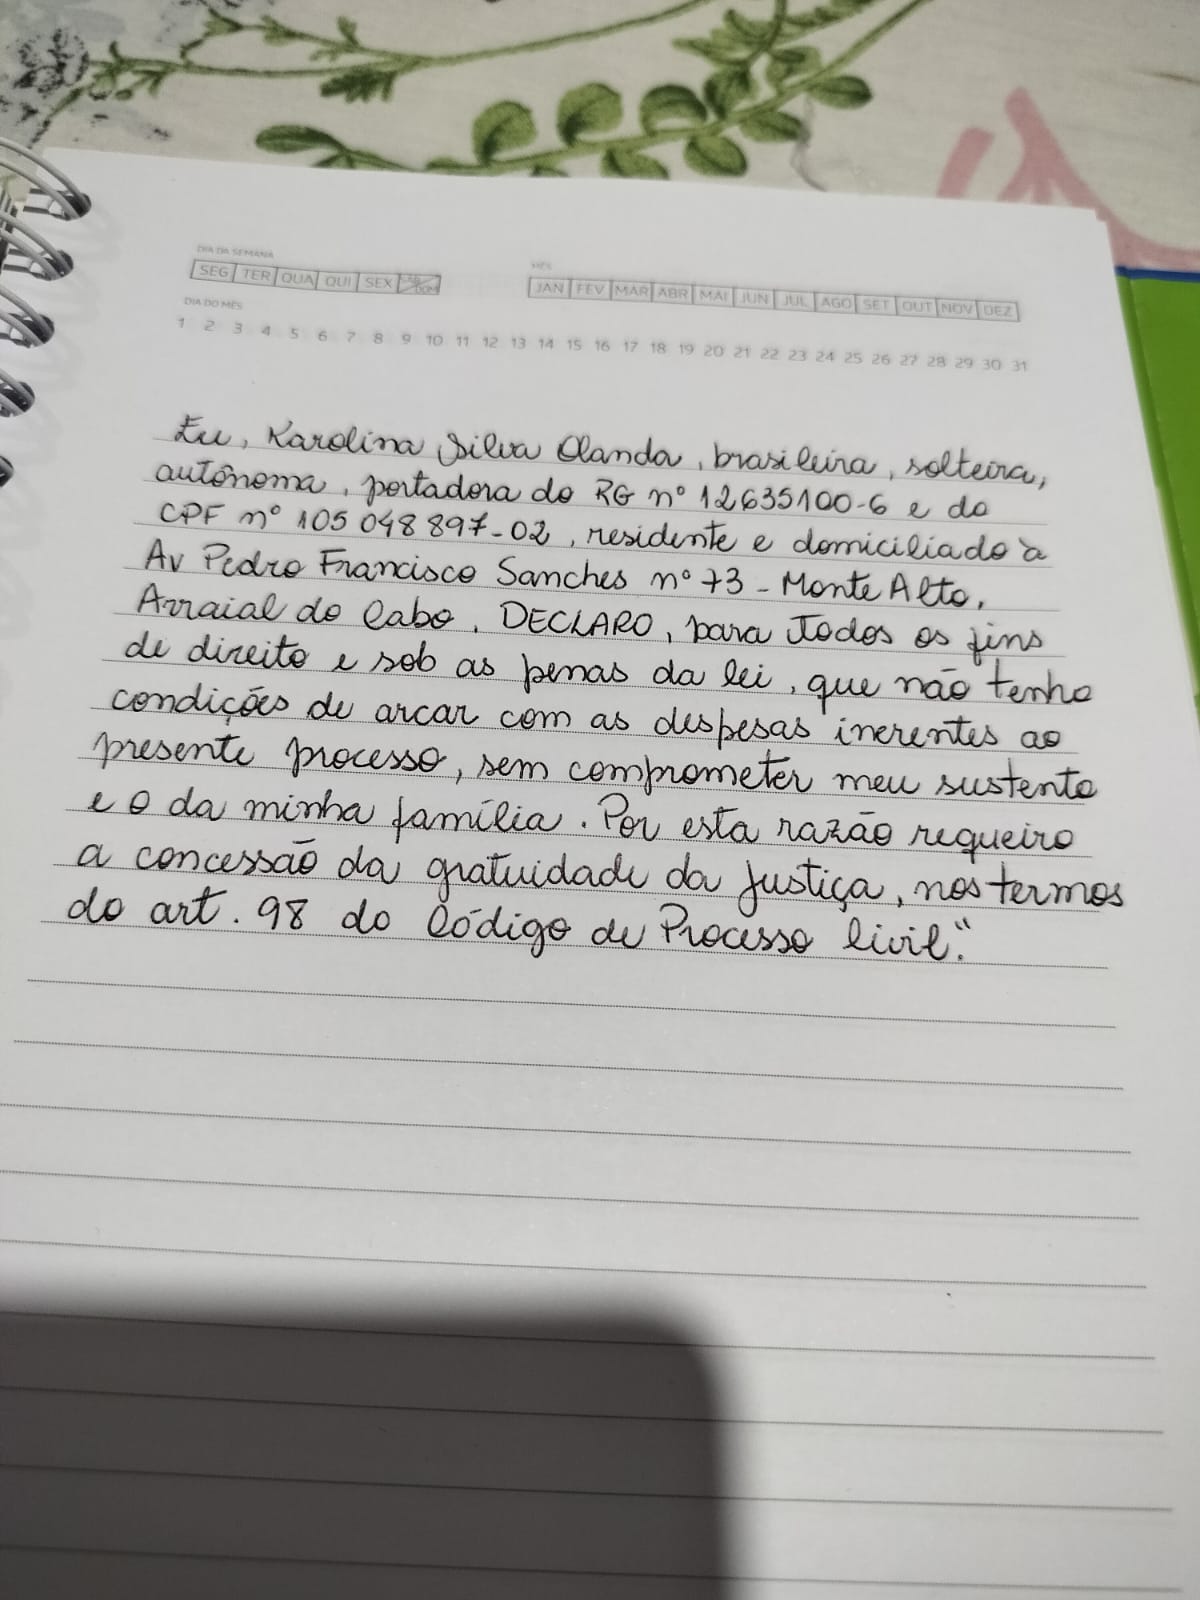 DIA DA SEMANA
SEG TER QUA QUI SEX SAB DOM
MÊS
JAN FEV MAR ABR MAI JUN JUL AGO SET OUT NOV DEZ
DIA DO MÊS
1 2 3 4 5 6 7 8 9 10 11 12 13 14 15 16 17 18 19 20 21 22 23 24 25 26 27 28 29 30 31
Eu, Karolina Silva Olanda, brasileira, solteira,
autônoma, portadora do RG nº 12635100-6 e do
CPF nº 105 048 897-02, residente e domiciliado à
Av Pedro Francisco Sanches nº 73 - Monte Alto,
Arraial do Cabo, DECLARO, para todos os fins
de direito e sob as penas da lei, que não tenho
condições de arcar com as despesas inerentes ao
presente processo, sem comprometer meu sustento
e o da minha família. Por esta razão requeiro
a concessão da gratuidade da justiça, nos termos
do art. 98 do Código de Processo Civil."